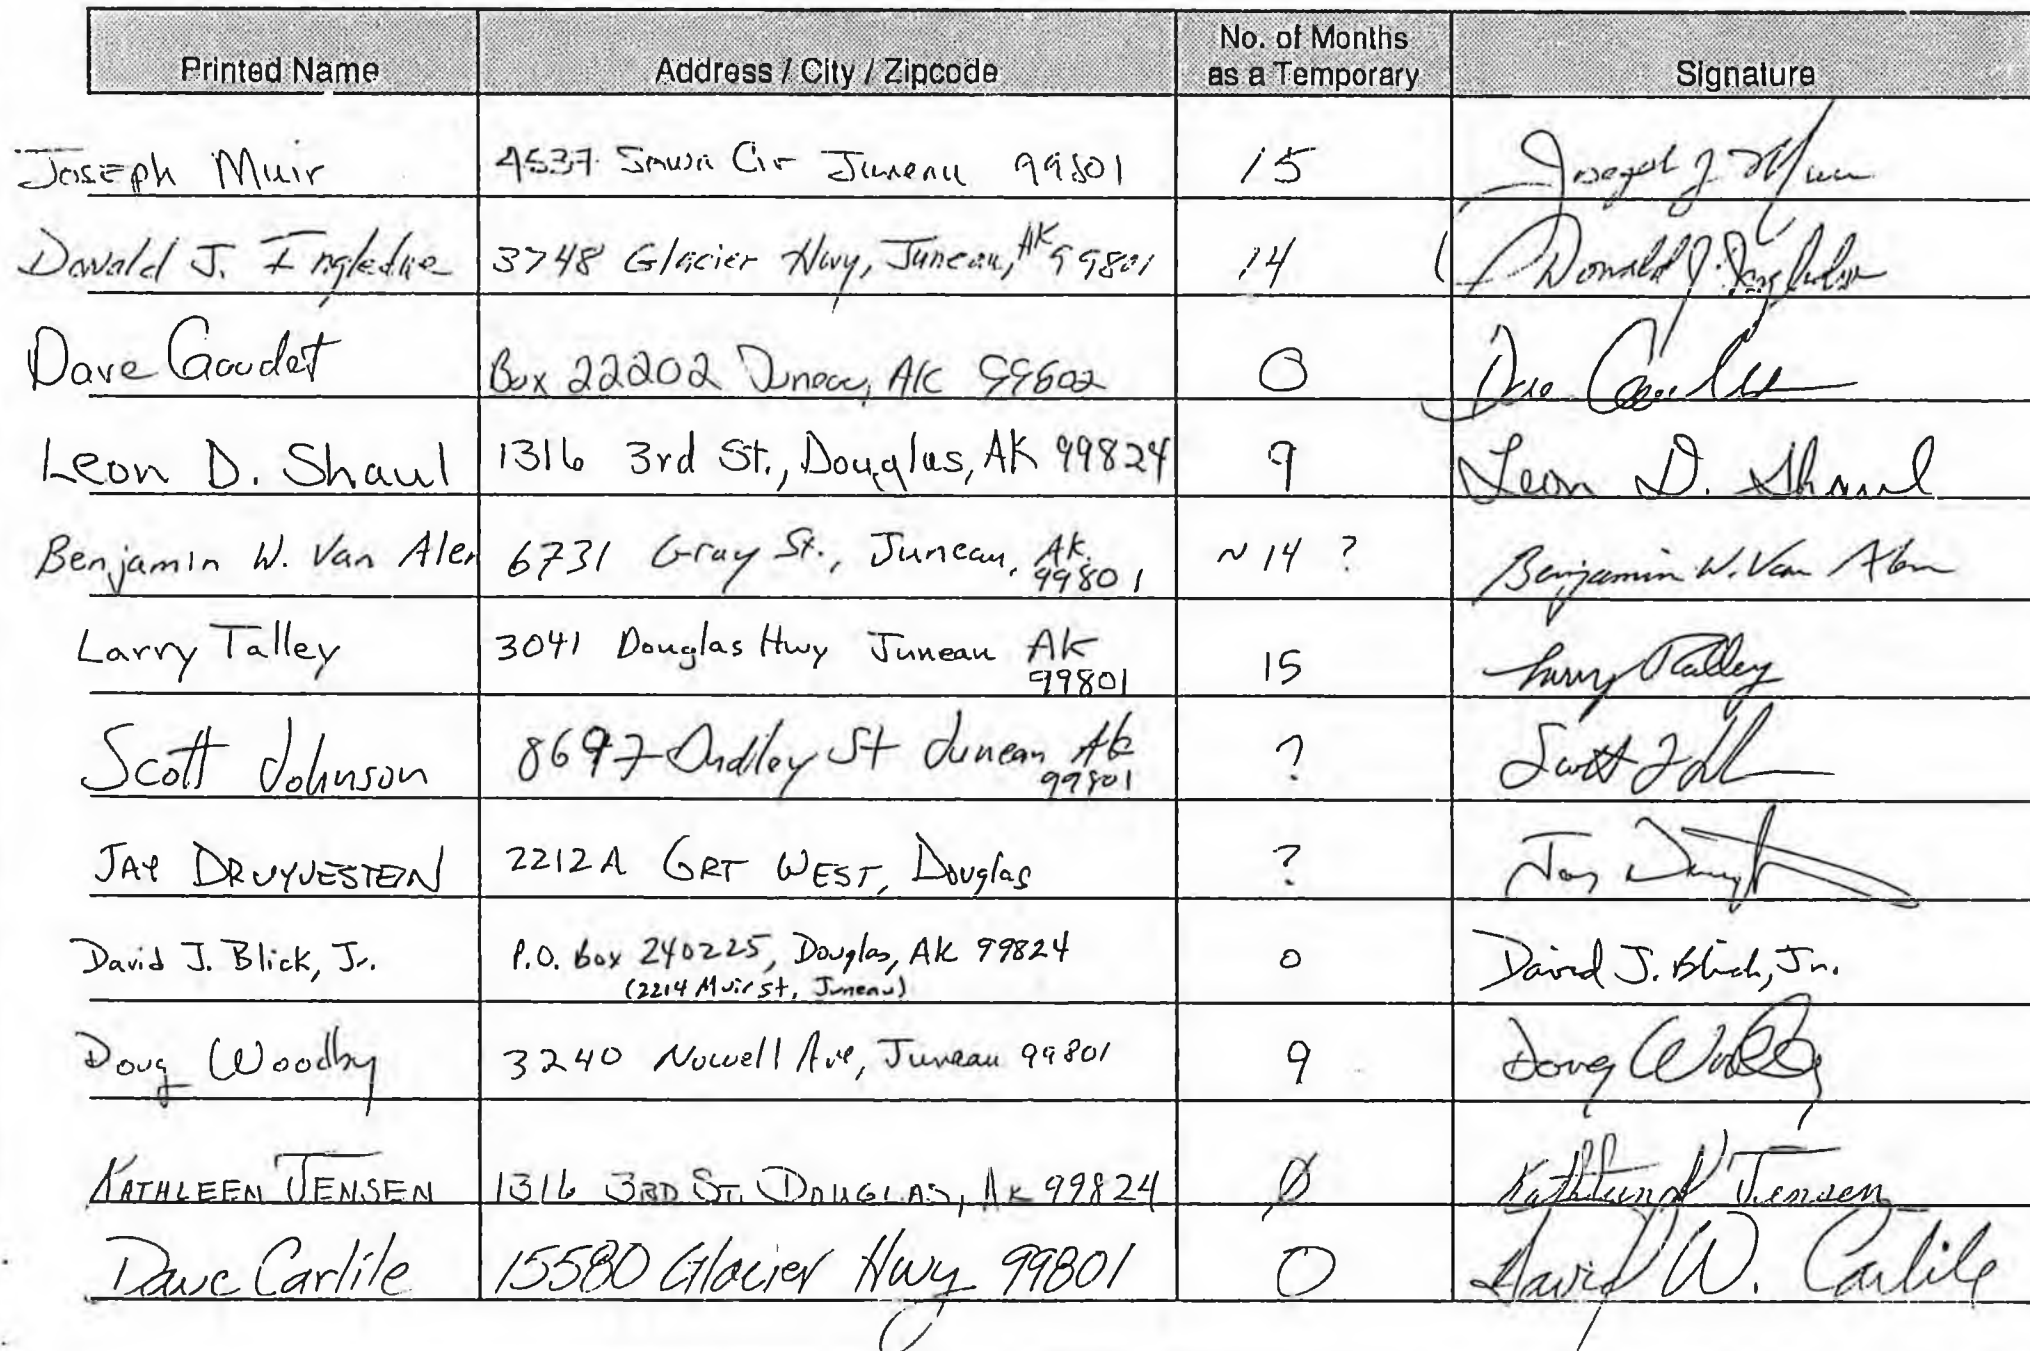 Printed Name Address / City / Zipcode No. of Months as a Temporary Signature
Joseph Muir 4537 Cir Juneau 99801 15 Joseph J Muir
Donald J. Ingledue 3748 Glacier Hwy, Juneau, AK 99801 14 Donald J. Ingledue
Dave Gaudet Box 22202 Juneau, AK 99802 0 Dave Gaudet
Leon D. Shaul 1316 3rd St., Douglas, AK 99824 9 Leon D. Shaul
Benjamin W. Van Alen 6731 Gray St., Juneau, AK. 99801 ~14 ? Benjamin W. Van Alen
Larry Talley 3041 Douglas Hwy Juneau AK 99801 15 Larry Talley
Scott Johnson 8697 Dudley St Juneau Ak 99801 ? Scott
JAY DRUYVESTEIN 2212A GRT WEST, Douglas ? Jay
David J. Blick, Jr. P.O. Box 240225, Douglas, AK 99824 0 David J. Blick, Jr.
(2214 Muir St, Juneau)
Doug Woodby 3240 Nowell Ave, Juneau 99801 9 Doug Woodby
KATHLEEN JENSEN 1316 3RD ST. DOUGLAS, AK 99824 Ø Kathleen Jensen
Dave Carlile 15580 Glacier Hwy 99801 0 David W. Carlile